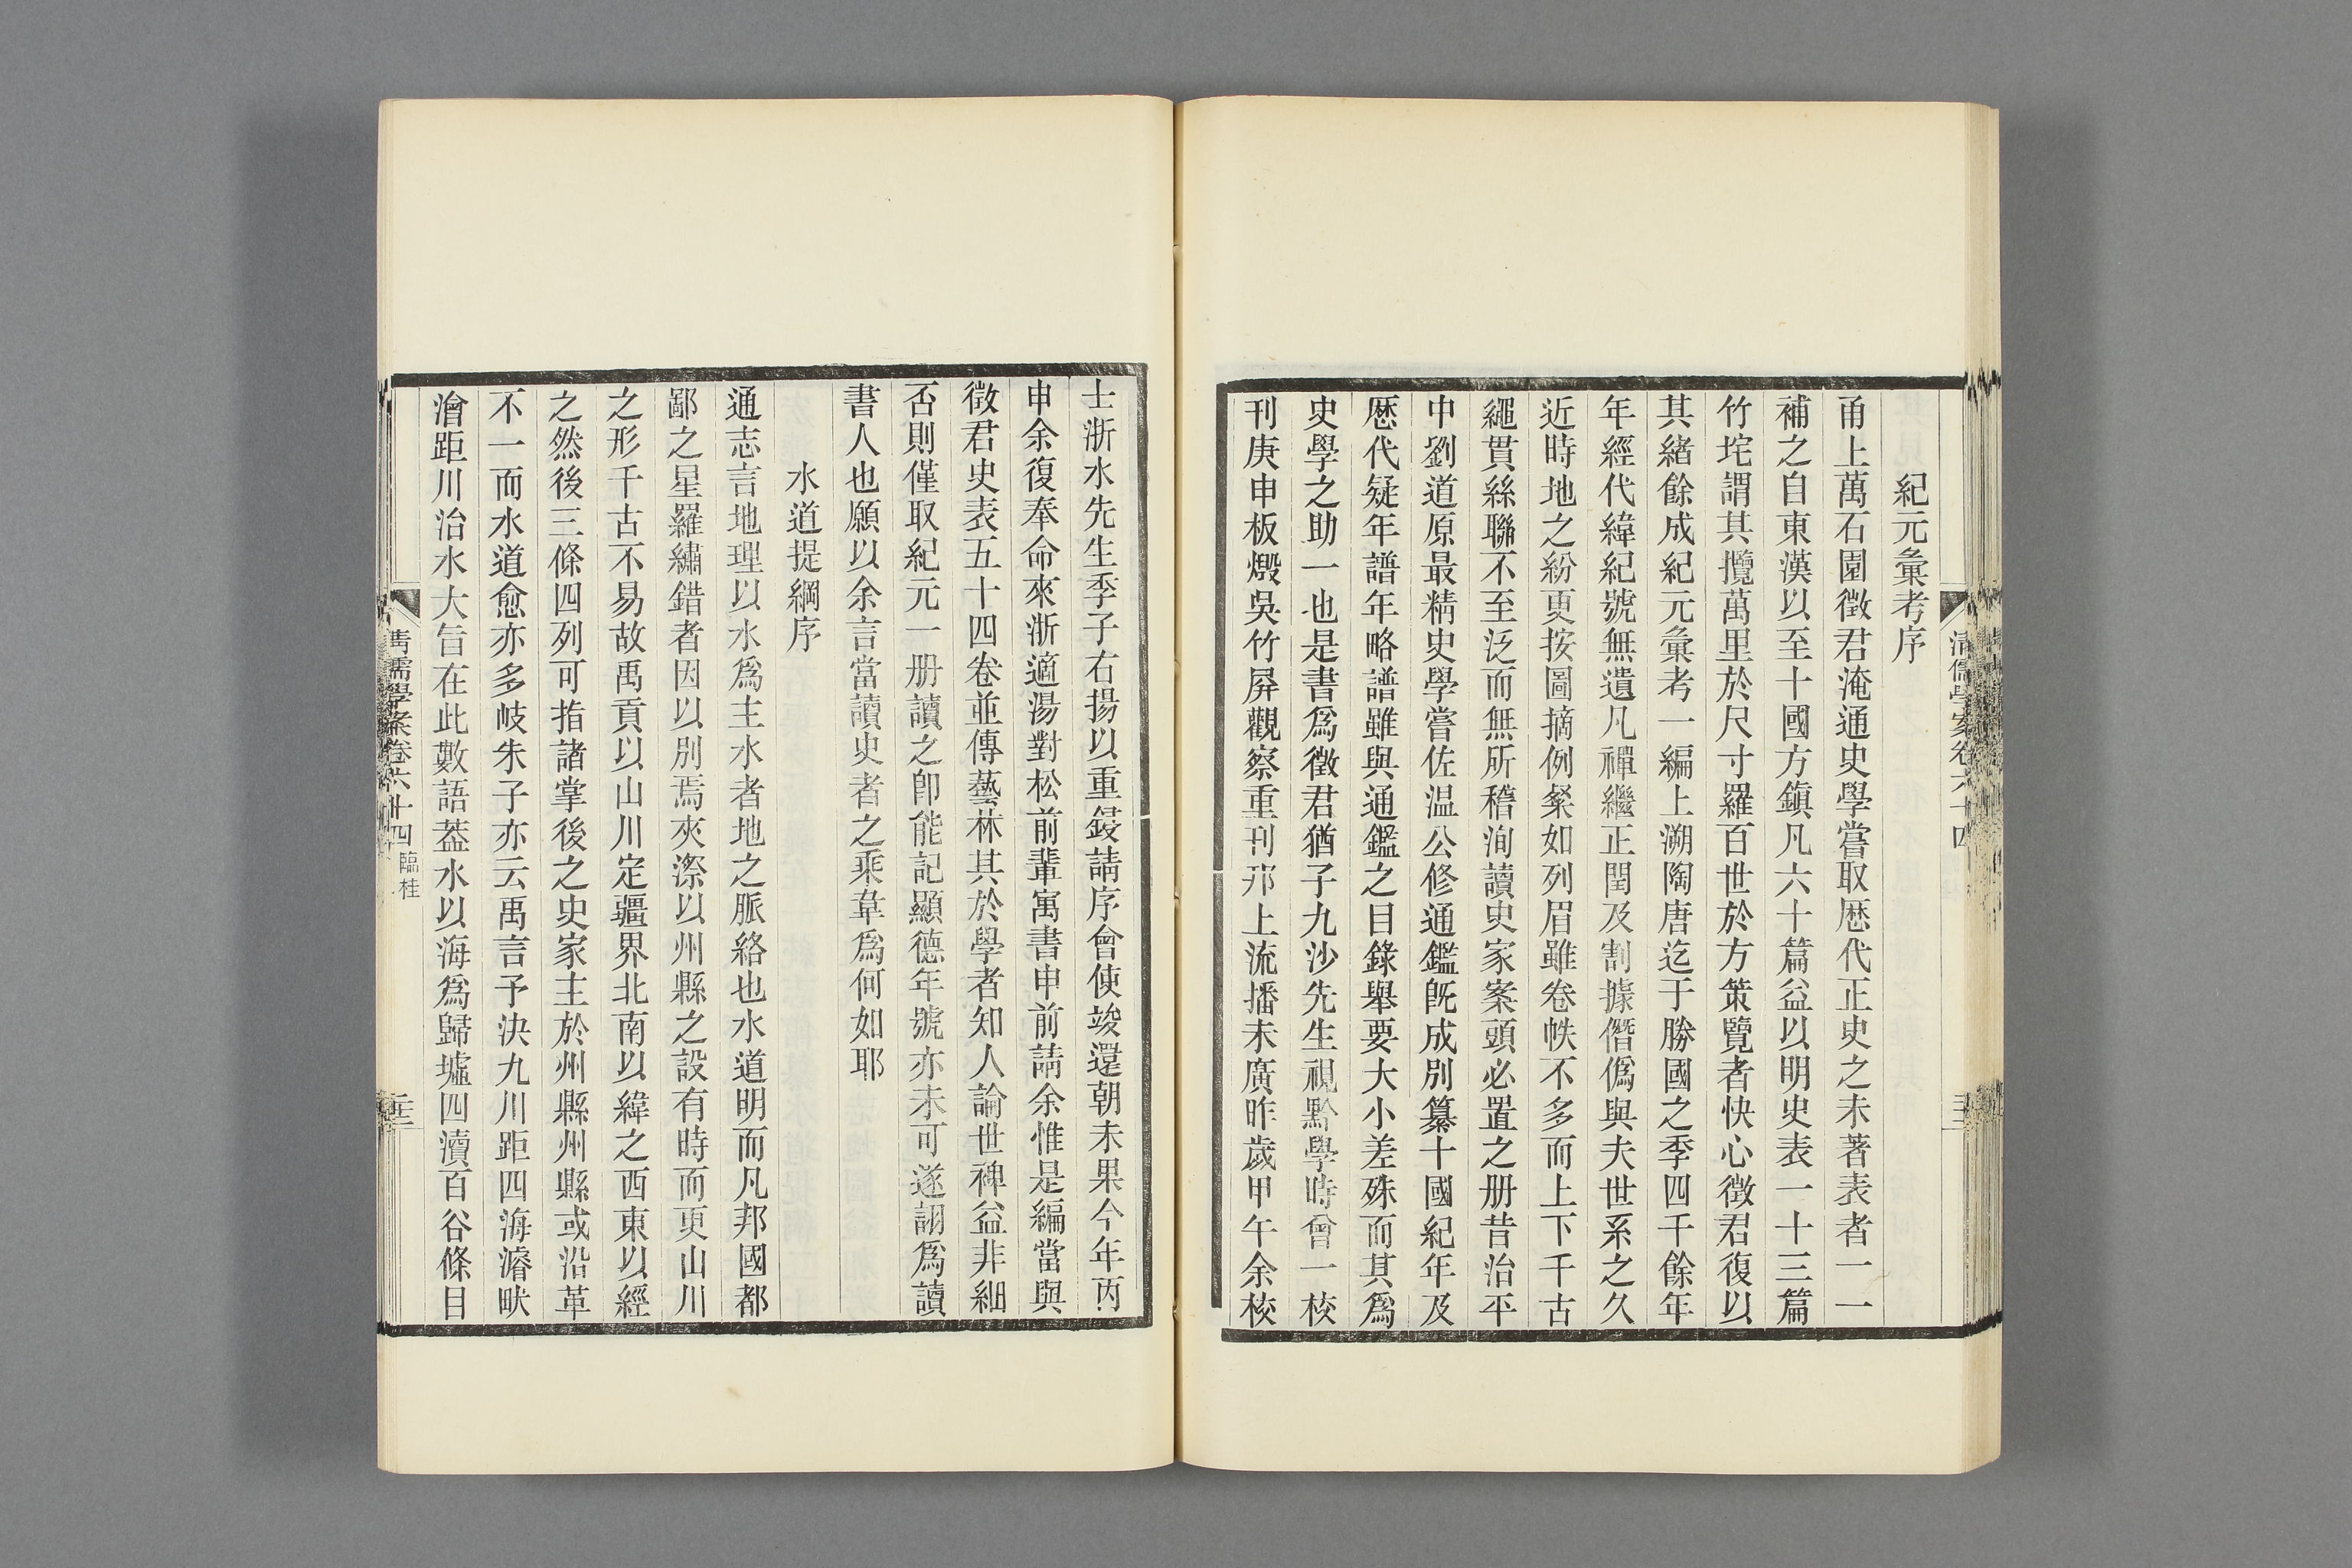 清儒學案卷六十四
紀元彙考序
甬上萬石園徵君淹通史學嘗取歷代正史之未著表者一一
補之自東漢以至十國方鎮凡六十篇益以明史表一十三篇
竹垞謂其攬萬里於尺寸羅百世於方策覽者快心徵君復以
其緒餘成紀元彙考一編上溯陶唐迄于勝國之季四千餘年
年經代緯紀號無遺凡禪繼正閏及割據僭僞與夫世系之久
近時地之紛更按圖摘例粲如列眉雖卷帙不多而上下千古
繩貫絲聯不至泛而無所稽洵讀史家案頭必置之册昔治平
中劉道原最精史學嘗佐温公修通鑑旣成別纂十國紀年及
歷代疑年譜年略譜雖與通鑑之目錄舉要大小差殊而其爲
史學之助一也是書爲徵君猶子九沙先生視黔學時曾一校
刊庚申板燬吳竹屏觀察重刊邗上流播未廣昨歲甲午余校
士浙水先生季子右揚以重鋟請序會使竣還朝未果今年丙
申余復奉命來浙適湯對松前輩寓書申前請余惟是編當與
徵君史表五十四卷並傳藝林其於學者知人論世裨益非細
否則僅取紀元一册讀之卽能記顯德年號亦未可遂詡爲讀
書人也願以余言當讀史者之乘韋爲何如耶
水道提綱序
通志言地理以水爲主水者地之脈絡也水道明而凡邦國都
鄙之星羅繡錯者因以別焉夾漈以州縣之設有時而更山川
之形千古不易故禹貢以山川定疆界北南以緯之西東以經
之然後三條四列可指諸掌後之史家主於州縣州縣或沿革
不一而水道愈亦多岐朱子亦云禹言予決九川距四海濬畎
澮距川治水大旨在此數語葢水以海爲歸墟四瀆百谷條目
清儒學案卷六十四 臨桂